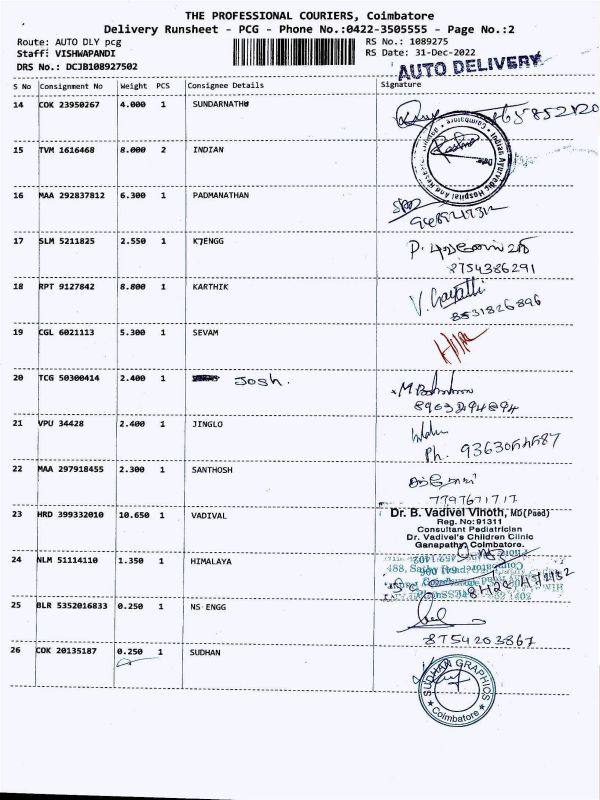 THE PROFESSIONAL COURIERS, Coimbatore
Delivery Runsheet - PCG - Phone No.:0422-3505555 - Page No.:2
Route: AUTO DLY pcg
RS No.: 1089275
Staff: VISHWAPANDI
RS Date: 31-Dec-2022
DRS No.: DCJB108927502
AUTO DELIVERY
S No Consignment No Weight PCS Consignee Details Signature
14 COK 23950267 4.000 1 SUNDARNATHU
15 TVM 1616468 8.000 2 INDIAN
Indian Ayurvedic Hospital And Coimbatore
16 MAA 292837812 6.300 1 PADMANATHAN
17 SLM 5211825 2.550 1 K7ENGG
8754386291
18 RPT 9127842 8.800 1 KARTHIK
V. Gayatti
8531826896
19 CGL 6021113 5.300 1 SEVAM
20 TCG 50300414 2.400 1 Josh.
21 VPU 34428 2.400 1 JINGLO
Ph.
22 MAA 297918455 2.300 1 SANTHOSH
7797671717
23 HRD 399332010 10.650 1 VADIVAL
Dr. B. Vadivel Vinoth, MD(Paed)
Reg. No: 91311
Consultant Pediatrician
Dr. Vadivel's Children Clinic
Ganapathy, Coimbatore.
24 NLM 51114110 1.350 1 HIMALAYA
25 BLR 5352016833 0.250 1 NS ENGG
8754203867
26 COK 20135187 0.250 1 SUDHAN
SUDHAN GRAPHICS
Coimbatore